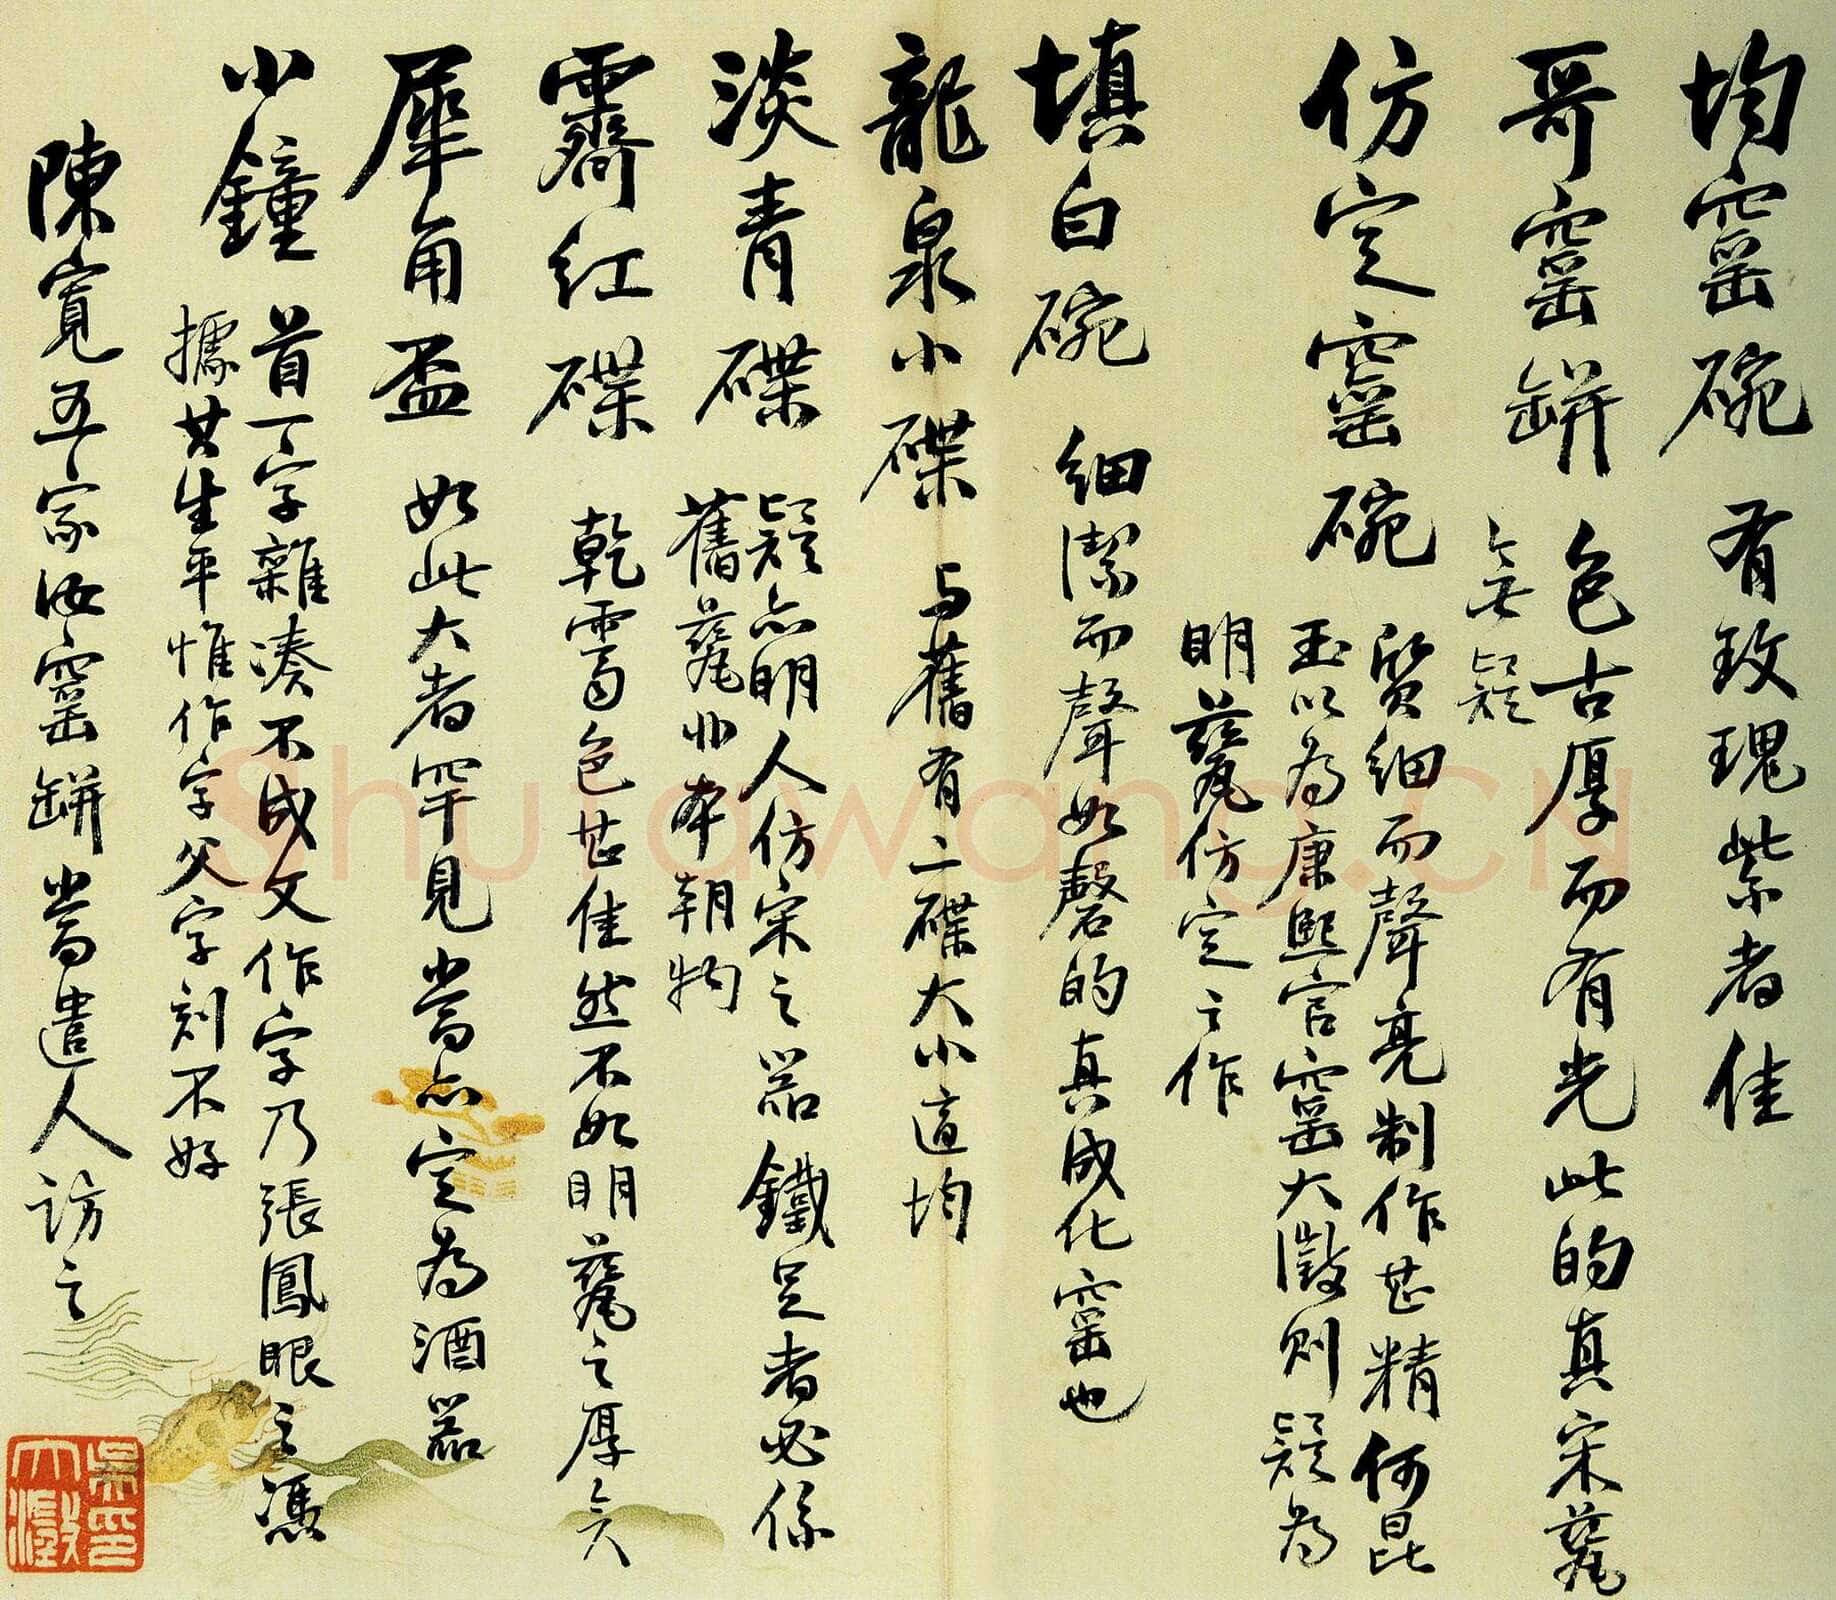 均窑碗 有玫瑰紫者佳
哥窑缾 色古厚而有光此的真宋甆
無疑
仿定窑碗 質細而聲亮制作甚精何昆
玉以為康熙官窑大澂則疑為
明甆仿定之作
填白碗 細潔而聲如磬的真成化窑也
龍泉小碟 与舊有二碟大小適均
淡青碟 疑亦明人仿宋之器鐵足者必係
舊甆非本朝物
霽紅碟 乾霁色甚佳然不如明甆之厚矣
犀角盃 如此大者罕見當亦定為酒器
小鐘 首一字雜湊不成文作字乃張鳳眼之漶
據其生平惟作字父字刻不好
陳寬五家汝窑缾當遣人訪之
吳印大澂
ShufaWang.CN